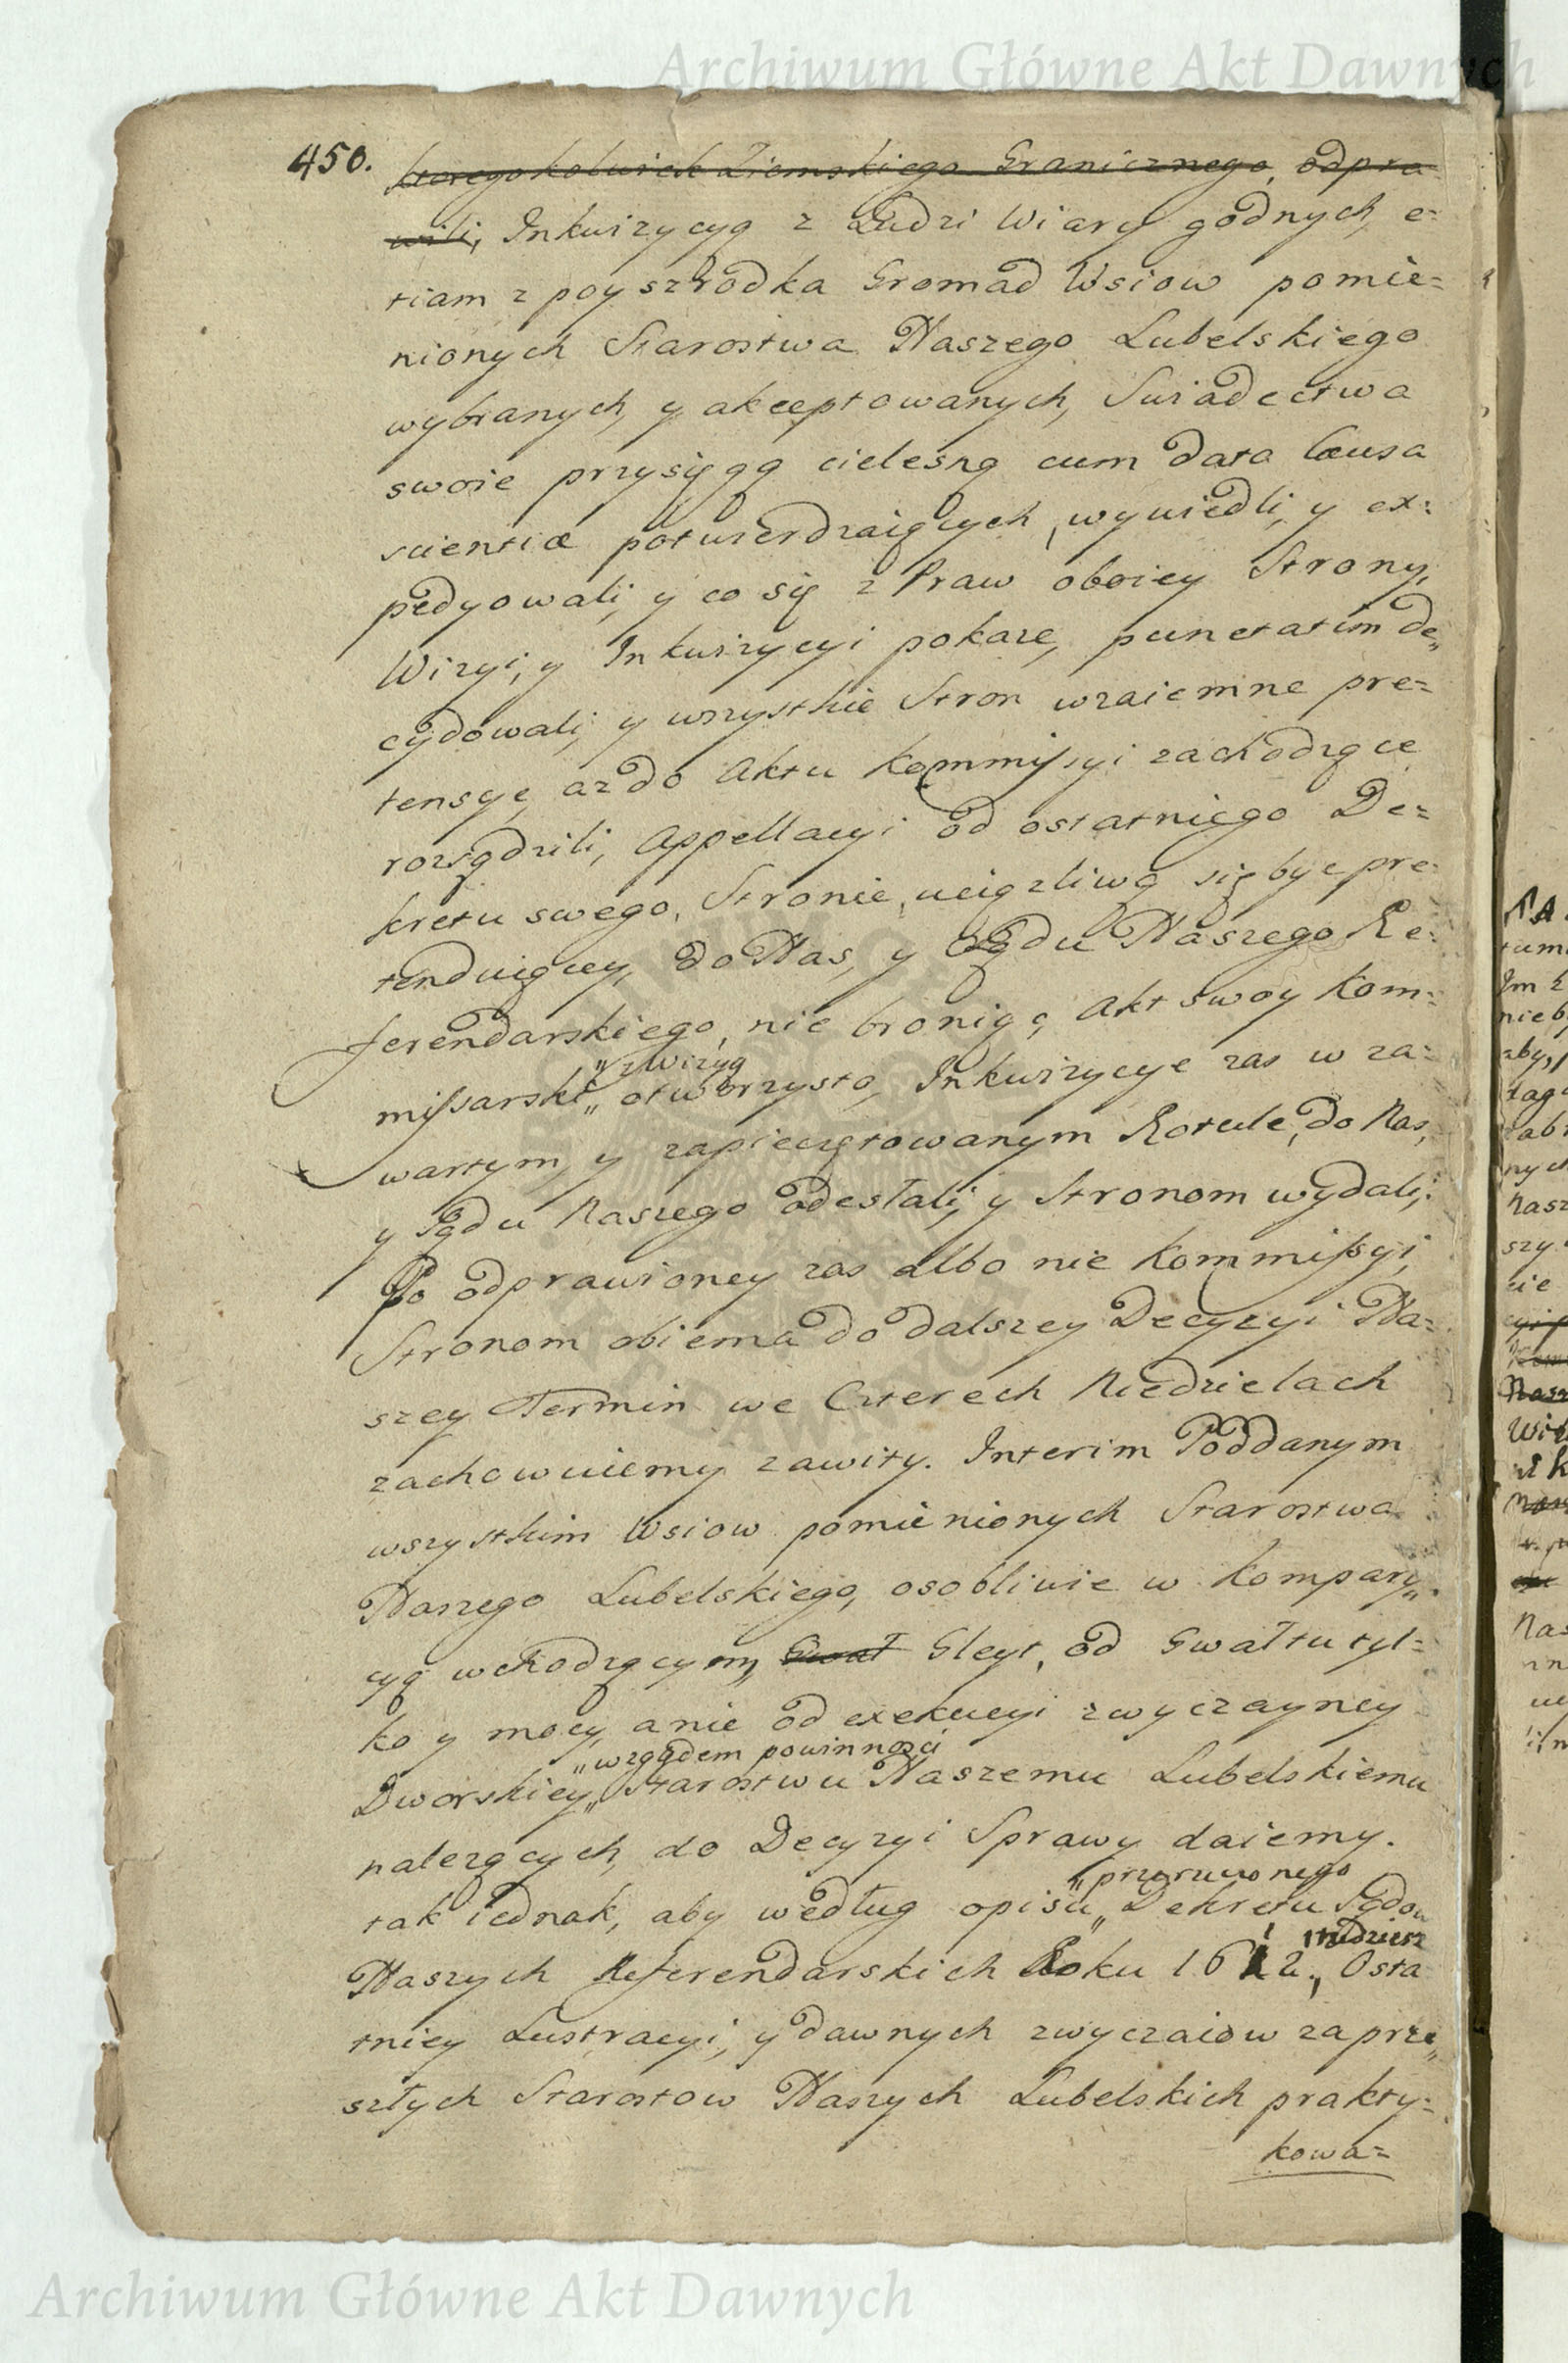 Archiwum Główne Akt Dawnych
450. ktoregokolwiek Ziemskiego Granicznego, odpra-
wili, Inkwizycyą z Ludzi Wiary godnych, e=
tiam z poyszrodka Gromad Wsiow pomie=
nionych Starostwa Naszego Lubelskiego
wybranych, y akceptowanych, Swiadectwa
swoie przysięgą cielesną cum data Causa
scientiæ potwierdzaiących, wywiedli, y ex=
pedyowali, y co się z Praw oboiey Strony,
Wizyi, y Inkwizycyi pokaze, punctatim de„
cydowali, y wszystkie Stron wzaiemne pre=
tensye, az do Aktu Kommissyi zachodzące
rozsądzili, Appellacyi od ostatniego De=
kretu swego, Stronie, uciązliwą się byc pre=
tenduiącey, do Nas, y Sądu Naszego Re=
ferendarskiego, nie bronią, Akt swoy Kom=
„y z Wizyą
missarski„ otworzysto, Inkwizycye zas w za=
wartym, y zapieczętowanym Rotule, do Nas,
y Sądu Naszego odesłali, y Stronom wydali,
Po odprawioney zas albo nie Kommissyi,
Stronom obiema do dalszey Decyzyi Na=
szey Termin we Czterech Niedzielach
zachowuiemy zawity. Interim Poddanym
wszystkim Wsiow pomienionych Starostwa
Naszego Lubelskiego, osobliwie w Kompary„
cyą wchodzącym, Gwał Gleyt, od Gwałtu tyl=
ko y mocy, a nie od exekucyi zwyczayney
„względem powinności
Dworskiey„ Starostwu Naszemu Lubelskiemu
nalezących, do Decyzyi Sprawy daiemy.
„przyrzuconego
tak iednak, aby według opisu„ Dekretu Sądow
Naszych Referendarskich Roku 1612., Osta
tniey Lustracyi, y dawnych zwyczaiow za prze„
szłych Starostow Naszych Lubelskich prakty=
kowa=
Archiwum Główne Akt Dawnych